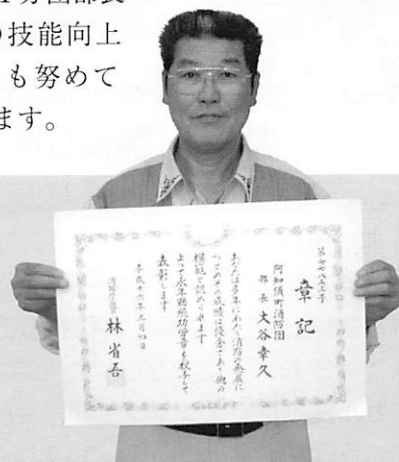 分団部長
の技能向上
も努めて
ます。
第七七八五二号
章記
阿知須町消防団
部長 大谷幸久
あなたは多年にわたり消防の発展に
つとめその成績は優秀であり他の
模範と認められます
よって永年勤続功労章を授与して
表彰します
平成十六年三月四日
消防庁長官
林省吾